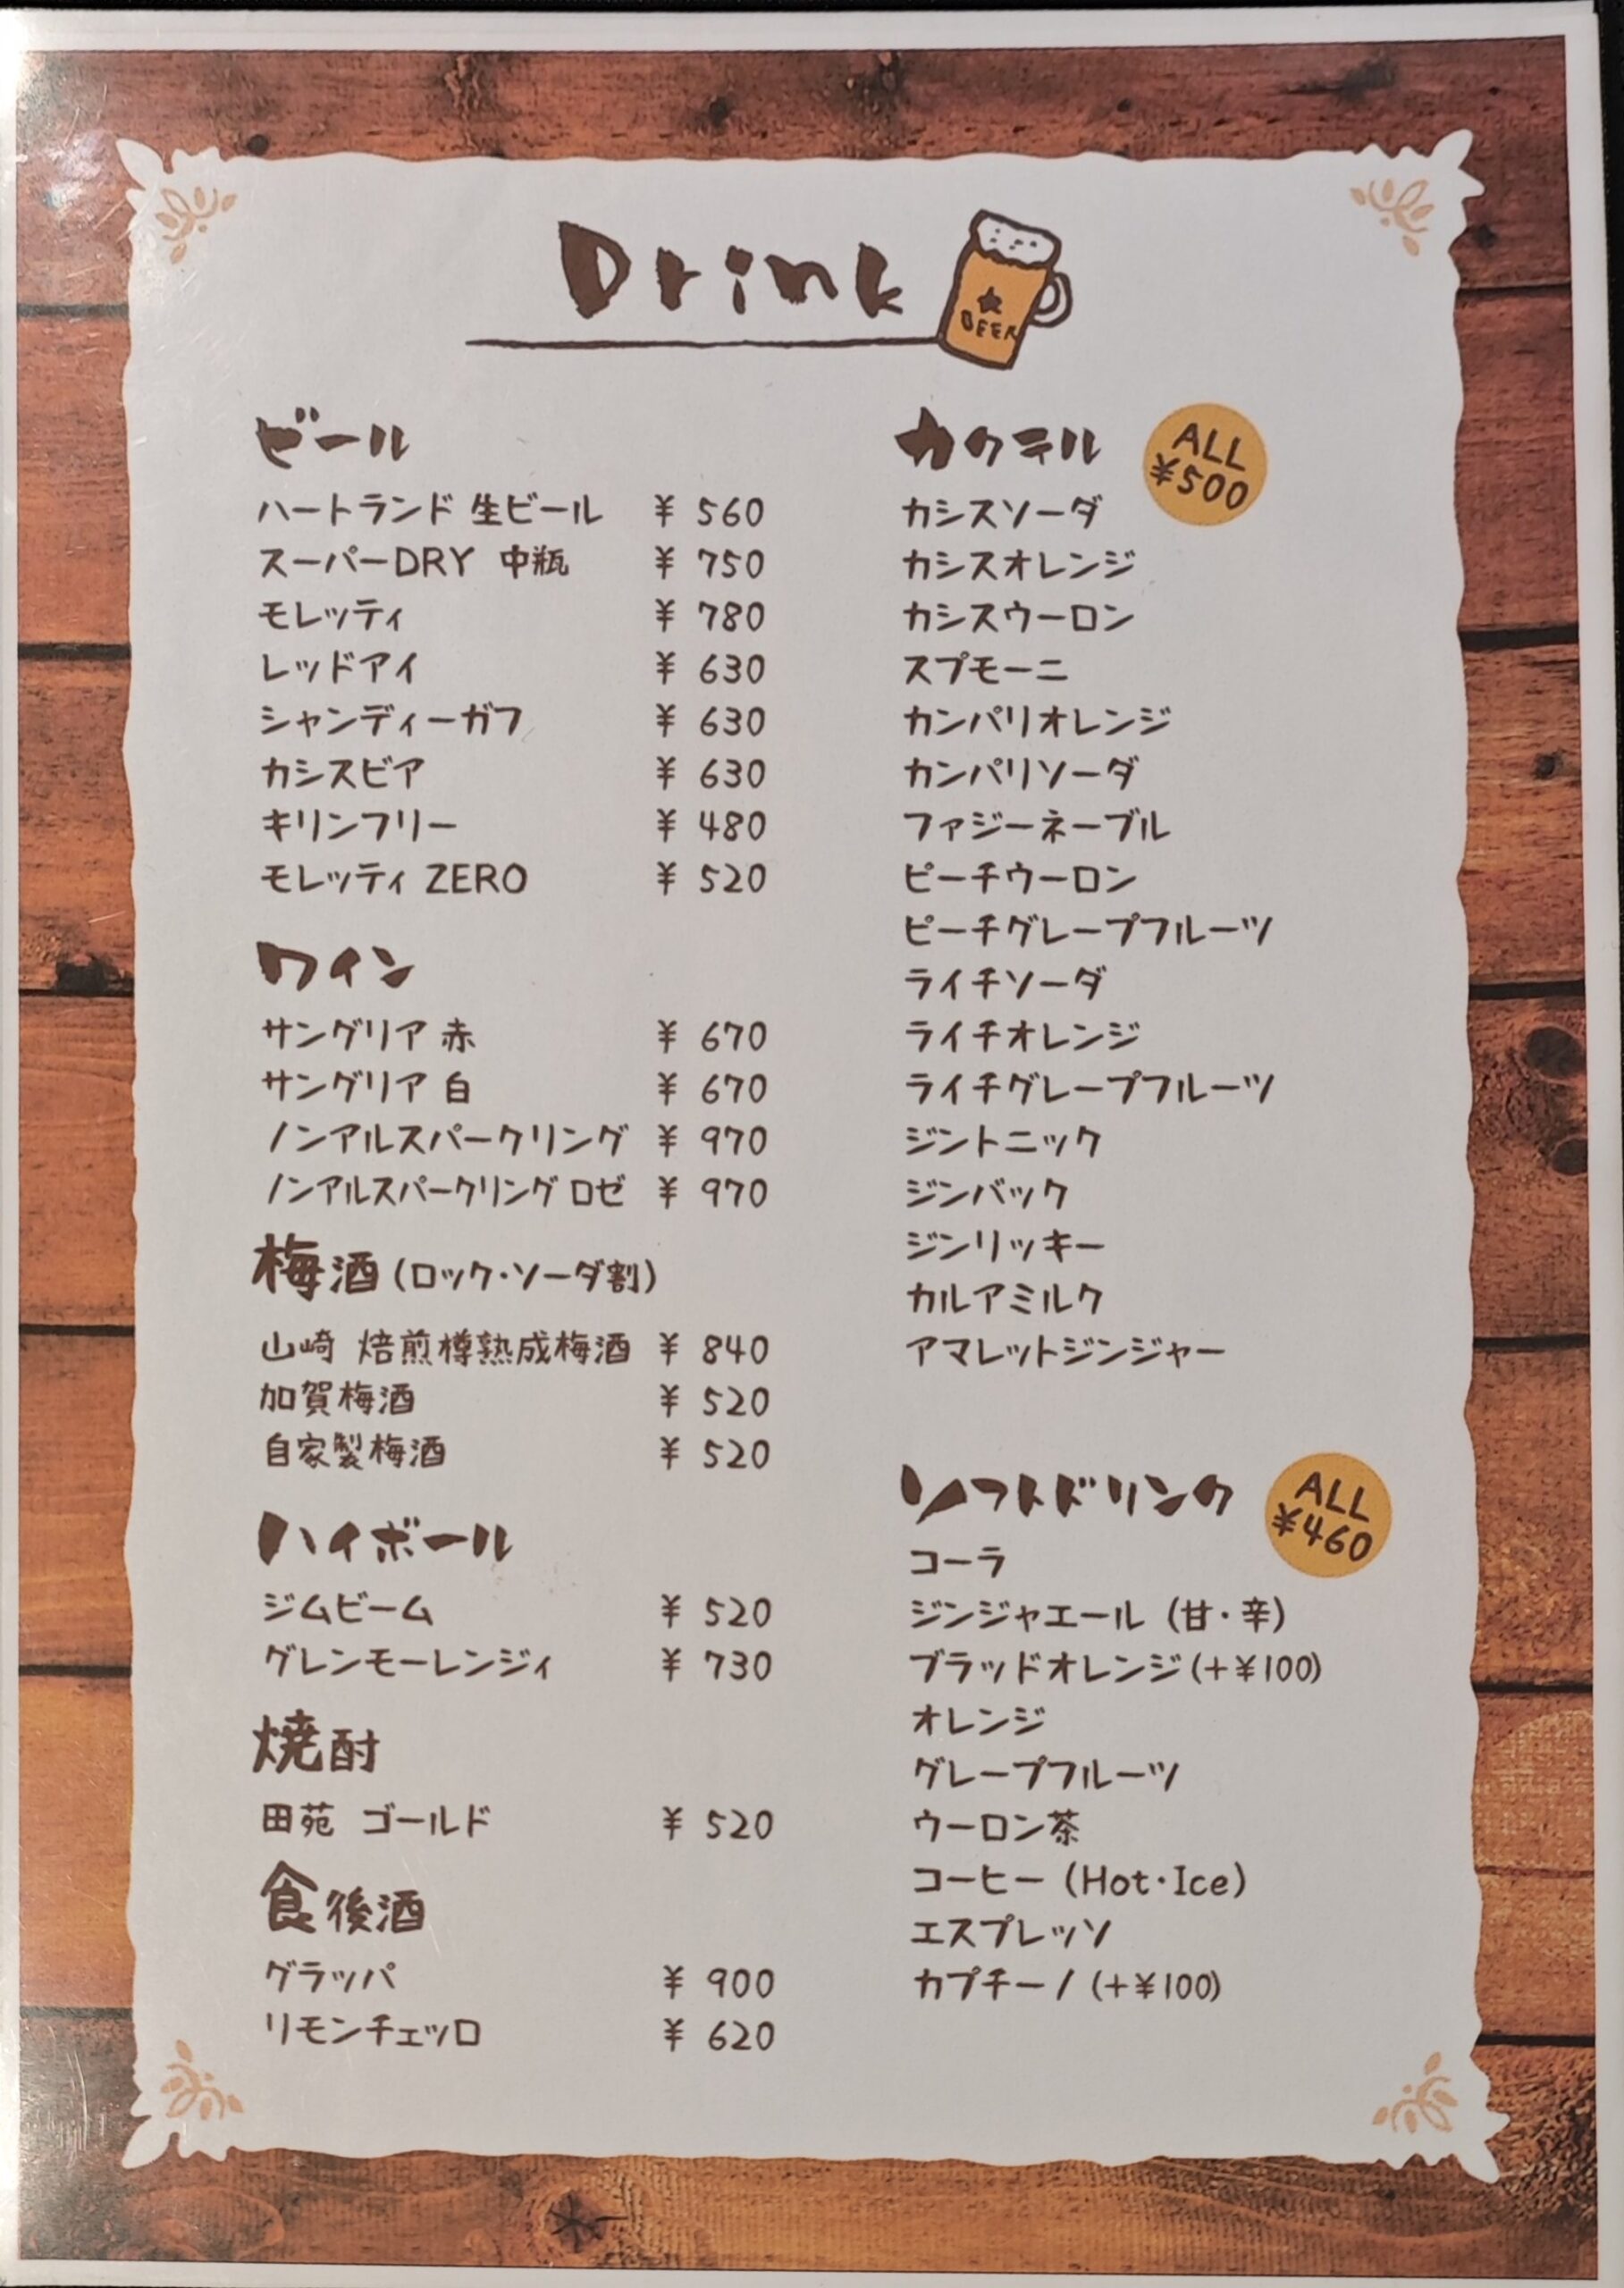 Drink
BEER
ビール
ハートランド 生ビール ¥ 560
スーパーDRY 中瓶 ¥ 750
モレッティ ¥ 780
レッドアイ ¥ 630
シャンディーガフ ¥ 630
カシスビア ¥ 630
キリンフリー ¥ 480
モレッティ ZERO ¥ 520
ワイン
サングリア 赤 ¥ 670
サングリア 白 ¥ 670
ノンアルスパークリング ¥ 970
ノンアルスパークリング ロゼ ¥ 970
梅酒 (ロック・ソーダ割)
山崎 焙煎樽熟成梅酒 ¥ 840
加賀梅酒 ¥ 520
自家製梅酒 ¥ 520
ハイボール
ジムビーム ¥ 520
グレンモーレンジィ ¥ 730
焼酎
田苑 ゴールド ¥ 520
食後酒
グラッパ ¥ 900
リモンチェッロ ¥ 620
カクテル
ALL
¥500
カシスソーダ
カシスオレンジ
カシスウーロン
スプモーニ
カンパリオレンジ
カンパリソーダ
ファジーネーブル
ピーチウーロン
ピーチグレープフルーツ
ライチソーダ
ライチオレンジ
ライチグレープフルーツ
ジントニック
ジンバック
ジンリッキー
カルアミルク
アマレットジンジャー
ソフトドリンク
ALL
¥460
コーラ
ジンジャエール (甘・辛)
ブラッドオレンジ(+¥100)
オレンジ
グレープフルーツ
ウーロン茶
コーヒー (Hot・Ice)
エスプレッソ
カプチーノ (+¥100)